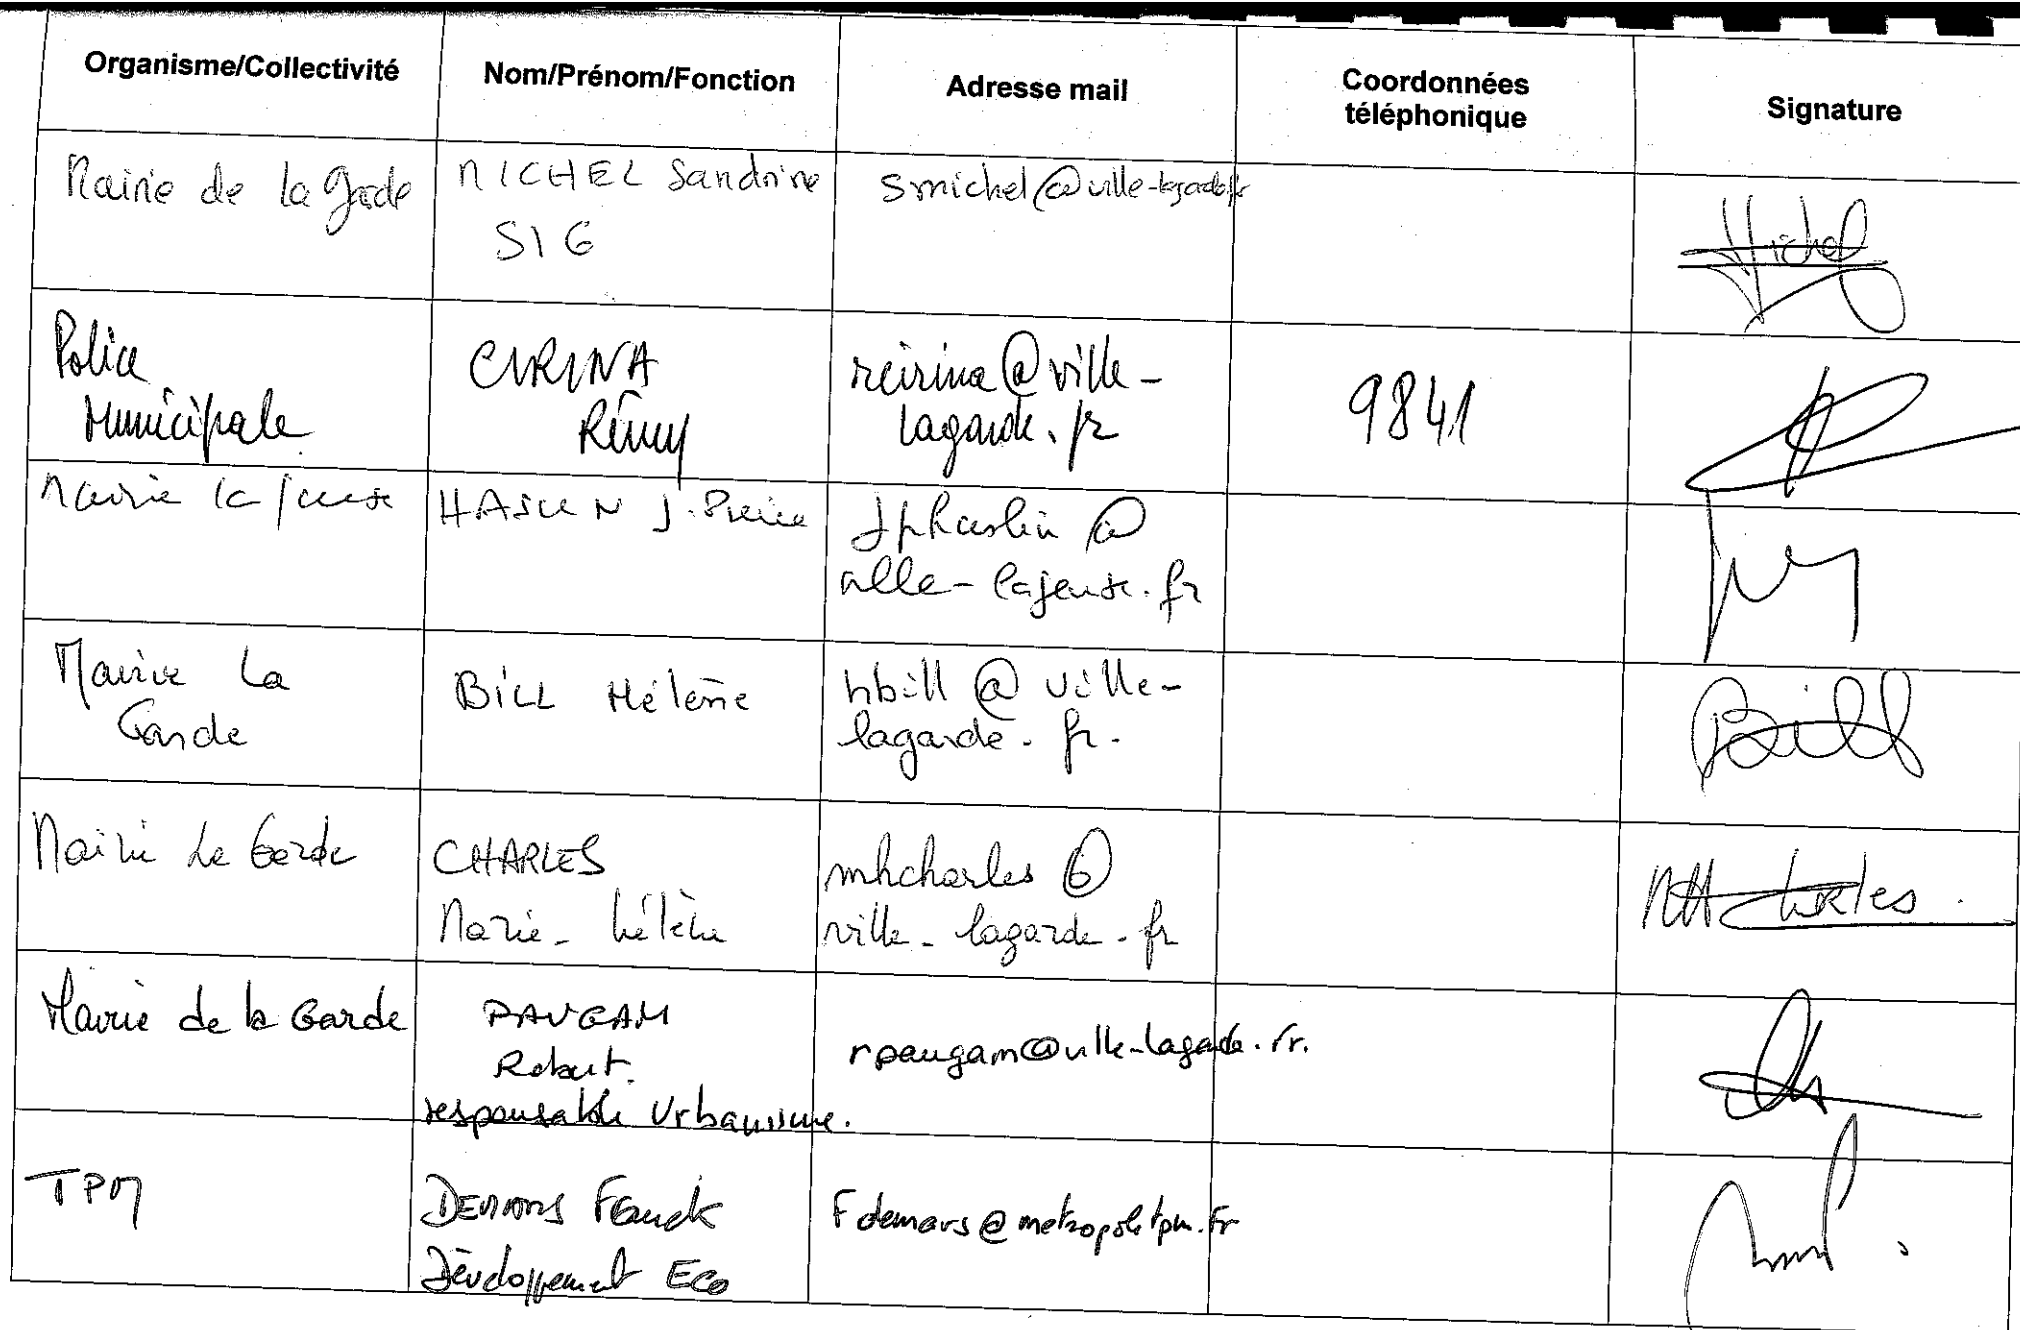 Organisme/Collectivité
Nom/Prénom/Fonction
Adresse mail
Coordonnées
téléphonique
Signature
Mairie de la Garde
MICHEL Sandrine
SIG
smichel@ville-lagarde.fr
Michel
Police
Municipale
CIRINA
Rémy
rcirina@ville-
lagarde.fr
9841
Mairie la
J. Pierre
@
fr
Mairie La
Garde
BILL Hélène
hbill@ville-
lagarde.fr.
Bill
Mairie La Garde
CHARLES
Marie-hélène
mhcharles@
ville-lagarde.fr
MH Charles
Mairie de la Garde
PAUGAM
Robert.
responsable Urbanisme.
rpaugam@ville-lagarde.fr.
TPM
DEMARS Franck
Développement Eco
Fdemars@metropoletpm.fr